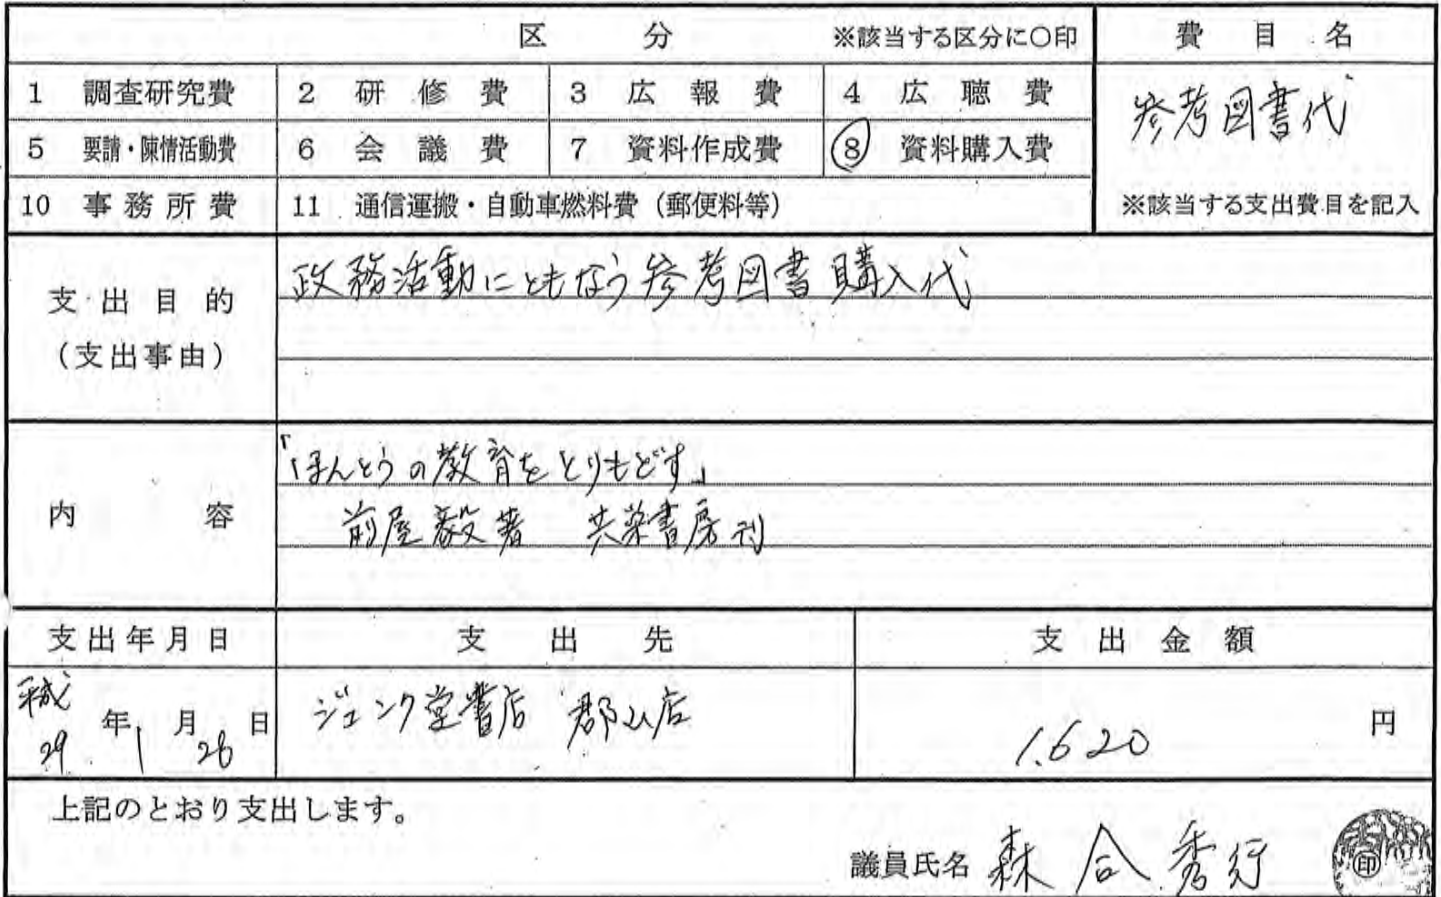 区 分 ※該当する区分に○印 費目名
1 調査研究費 2 研修費 3 広報費 4 広聴費
参考図書代
5 要請・陳情活動費 6 会議費 7 資料作成費 ⑧ 資料購入費
10 事務所費 11 通信運搬・自動車燃料費（郵便料等） ※該当する支出費目を記入
支出目的
（支出事由）
政務活動にともなう参考図書購入代
内容
「ほんとうの教育をとりもどす」
前屋毅著 共栄書房刊
支出年月日 支出先 支出金額
平成29年1月28日 ジュンク堂書店 郡山店 1.620円
上記のとおり支出します。
議員氏名 森合秀行 印